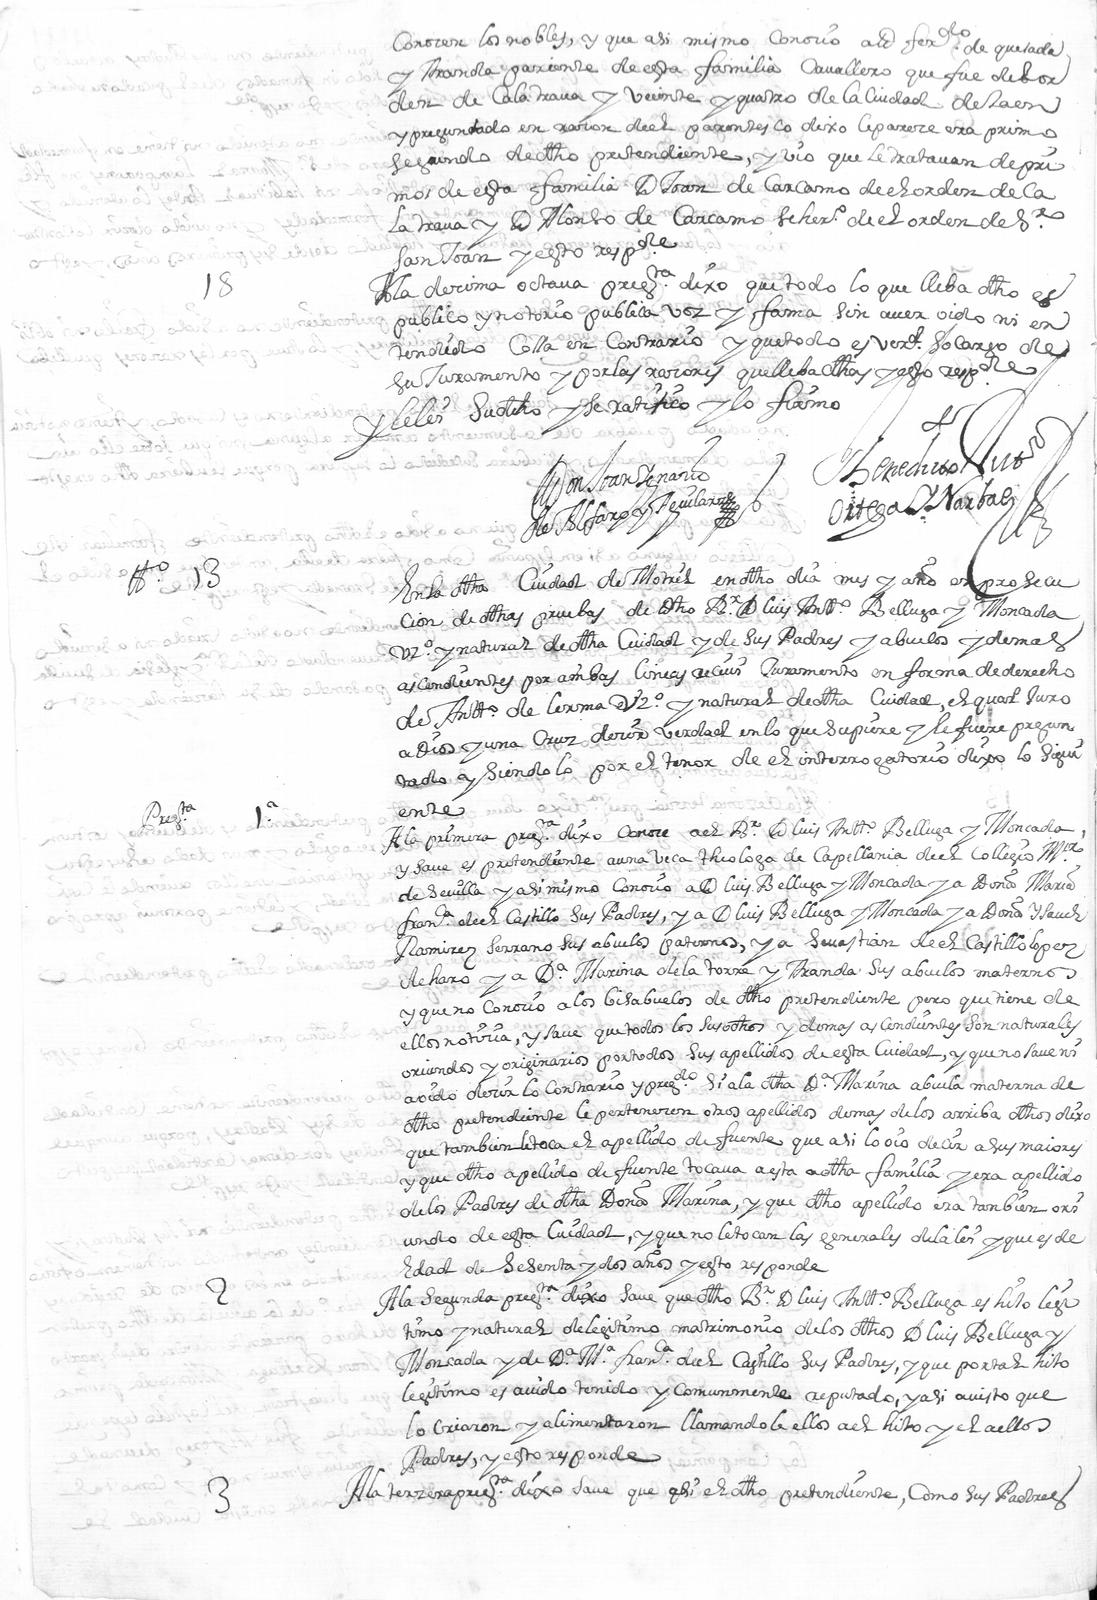 Conocen los nobles, y que asi mismo Conocio a D ferdo. de quesada
y Aranda pariente de esta familia Cavallero que fue del or
den de Calatraua y veinte y quatro de la Ciudad de Jaen
y preguntado en razon de el parentesco dixo le pareze era primo
segundo de dtho pretendiente, y vio que se tratauan de pri
mos de esta familia D Joan de Carcamo de el orden de Ca
latraua y D Alonso de Carcamo su hero. de el orden de Sr.
San Joan y esto respde
18 A la dezima octaua pregta. dixo que todo lo que lleba dtho es
publico y notorio publica voz y fama sin auer oido ni en
tendido Cossa en Contrario y que todo es verd. so cargo de
su Juramento y por las razones que lleba dthas y esto respde
y leles su dtho y se ratifico y lo firmo
Don Joan Ignacio
de Alfaro y Aguilar
Dr Benedicto
Ortega y Narbaez
tto. 13 En la dtha Ciudad de Motril en dtho dia mes y año en prosecu
cion de dthas pruebas de dtho Br. D Luis Antto. Belluga y Moncada
vzo. y natural de dtha Ciudad y de sus Padres y abuelos y demas
ascendientes por ambas lineas reciui Juramento en forma de derecho
de Antto. de lerma vzo. y natural de dtha Ciudad, el qual Juro
a Dios y una Cruz dezir verdad en lo que supiere y le fuere pregun
tado y siendolo por el tenor de el interrogatorio dixo lo sigui
ente
Pregta 1a. A la primera pregta. dixo conoce a el Br. D Luis Antto. Belluga y Moncada,
y saue es pretendiente a una veca theologa de Capellania de el Collegio Mr.
de Seuilla y asi mismo Conocio a D Luis Belluga y Moncada y a Dona Maria
franca. de el Castillo sus Padres, y a D Luis Belluga y Moncada y a Dona Ysauel
Ramirez Serrano sus abuelos paternos, y a Seuastian de el Castillo lopez
de haro y a Da. Marina de la torre y Aranda sus abuelos maternos
y que no Conocio a los bisabuelos de dtho pretendiente pero que tiene de
ellos noticia, y saue que todos los susodthos y demas ascendientes son naturales
oriundos y originarios por todos sus apellidos de esta Cuidad, y que no saue ni
a oido dezir lo contrario y pregdo. si a la dtha Da. Marina abuela materna de
dtho pretendiente le pertenecen otros apellidos demas de los arriba dthos dixo
que tambien le toca el apellido de fuente que asi lo oio decir a sus maiores
y que dtho apellido de fuente tocaua a esta dtha familia y era apellido
de los Padres de dtha Dona Marina, y que dtho apellido era tambien ori
undo de esta Cuidad, y que no le tocan las generales de la lei y que es de
hedad de sesenta y dos años y esto responde
2 A la segunda pregta. dixo saue que dtho Br. D Luis Antto. Belluga es hixo legi
timo y natural de legitimo matrimonio de los dthos D Luis Belluga y
Moncada y de Da. Ma. franca. de el Castillo sus Padres, y que por tal hixo
legitimo es auido tenido y comunmente reputado, y asi a uisto que
lo criaron y alimentaron llamandole ellos a el hixo y el a ellos
Padres, y esto responde
3 A la terzera pregta. dixo saue que asi el dtho pretendiente, Como sus Padres